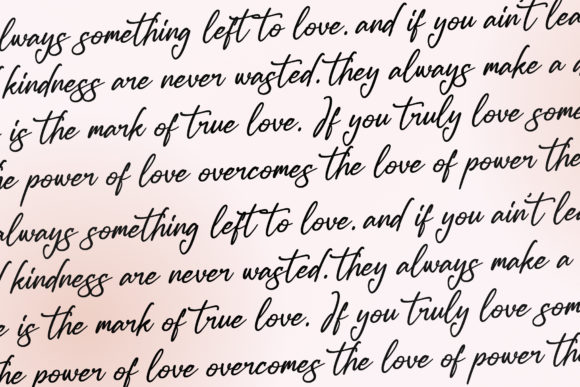 always something left to love. and if you ain't lea
kindness are never wasted. they always make a d
is the mark of true love. If you truly love some
the power of love overcomes the love of power the
always something left to love. and if you ain't lea
kindness are never wasted. they always make a
is the mark of true love. If you truly love som
the power of love overcomes the love of power th